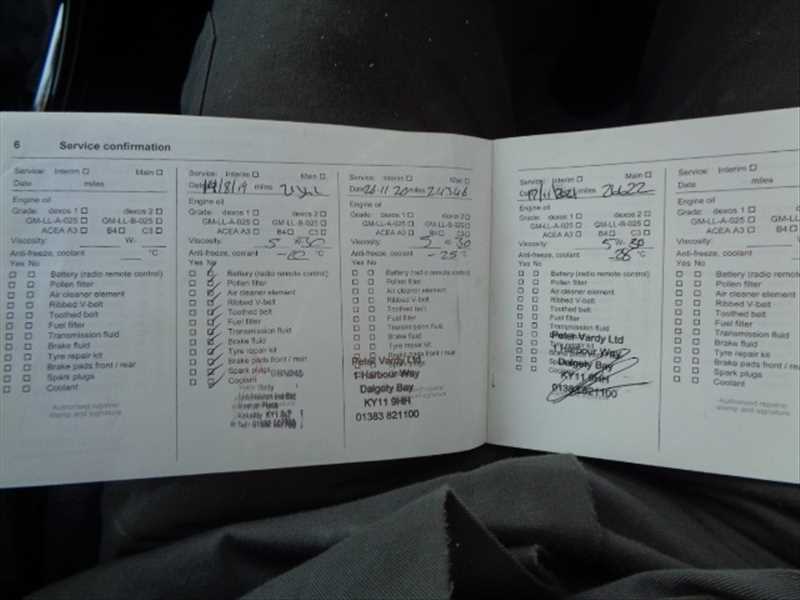 6 Service confirmation
Service: Interim ☐ Main ☐
Date miles
Engine oil
Grade: dexos 1 ☐ dexos 2 ☐
GM-LL-A-025 ☐ GM-LL-B-025 ☐
ACEA A3 ☐ B4 ☐ C3 ☐
Viscosity: W-
Anti-freeze, coolant °C
Yes No
☐ ☐ Battery (radio remote control)
☐ ☐ Pollen filter
☐ ☐ Air cleaner element
☐ ☐ Ribbed V-belt
☐ ☐ Toothed belt
☐ ☐ Fuel filter
☐ ☐ Transmission fluid
☐ ☐ Brake fluid
☐ ☐ Tyre repair kit
☐ ☐ Brake pads front / rear
☐ ☐ Spark plugs
☐ ☐ Coolant
Authorised repairer
stamp and signature
Service: Interim ☐ Main ☐
Date 14/8/19 miles
Engine oil
Grade: dexos 1 ☐ dexos 2 ☐
GM-LL-A-025 ☐ GM-LL-B-025 ☐
ACEA A3 ☐ B4 ☐ C3 ☐
Viscosity: 5 W-30
Anti-freeze, coolant °C
Yes No
Battery (radio remote control)
Pollen filter
Air cleaner element
Ribbed V-belt
Toothed belt
Fuel filter
Transmission fluid
Brake fluid
Tyre repair kit
Brake pads front / rear
Spark plugs
Coolant
Service: Interim ☐ Main ☐
Date 26.11.20 miles 24346
Engine oil
Grade: dexos 1 ☐ dexos 2 ☐
GM-LL-A-025 ☐ GM-LL-B-025 ☐
ACEA A3 ☐ B4 ☐ C3 ☐
Viscosity: 5 W-30
Anti-freeze, coolant -25 °C
Yes No
☐ ☐ Battery (radio remote control)
☐ ☐ Pollen filter
☐ ☐ Air cleaner element
☐ ☐ Ribbed V-belt
☐ ☐ Toothed belt
☐ ☐ Fuel filter
☐ ☐ Transmission fluid
☐ ☐ Brake fluid
☐ ☐ Tyre repair kit
Brake pads front / rear
Peter Vardy Ltd.
1 Harbour Way
Dalgety Bay
KY11 9HH
01383 821100
Service: Interim ☐ Main ☐
Date 17/11/2021 miles 26622
Engine oil
Grade: dexos 1 ☐ dexos 2 ☐
GM-LL-A-025 ☐ GM-LL-B-025 ☐
ACEA A3 ☐ B4 ☐ C3 ☐
Viscosity: 5 W-30
Anti-freeze, coolant -28 °C
Yes No
☐ ☐ Battery (radio remote control)
☐ ☐ Pollen filter
☐ ☐ Air cleaner element
☐ ☐ Ribbed V-belt
☐ ☐ Toothed belt
☐ ☐ Fuel filter
☐ ☐ Transmission fluid
Peter Vardy Ltd.
1 Harbour Way
Dalgety Bay
KY11 9HH
01383 821100
Service: Interim ☐
Date miles
Engine oil
Grade: dexos 1 ☐
GM-LL-A-025 ☐
ACEA A3 ☐
Viscosity:
Anti-freeze, coolant
Yes No
☐ ☐ Battery (radio
☐ ☐ Pollen filter
☐ ☐ Air cleaner element
☐ ☐ Ribbed V-belt
☐ ☐ Toothed belt
☐ ☐ Fuel filter
☐ ☐ Transmission fluid
☐ ☐ Brake fluid
☐ ☐ Tyre repair kit
☐ ☐ Brake pads front
☐ ☐ Spark plugs
☐ ☐ Coolant
Authorised repairer
stamp and signature